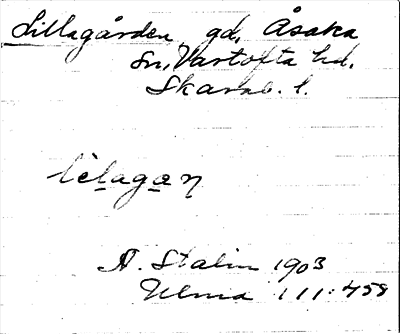 Lillagården gd, Åsaka
sn, Vartofta hd.
Skarab. l.
A. Stalin 1903
Ulma 111:458